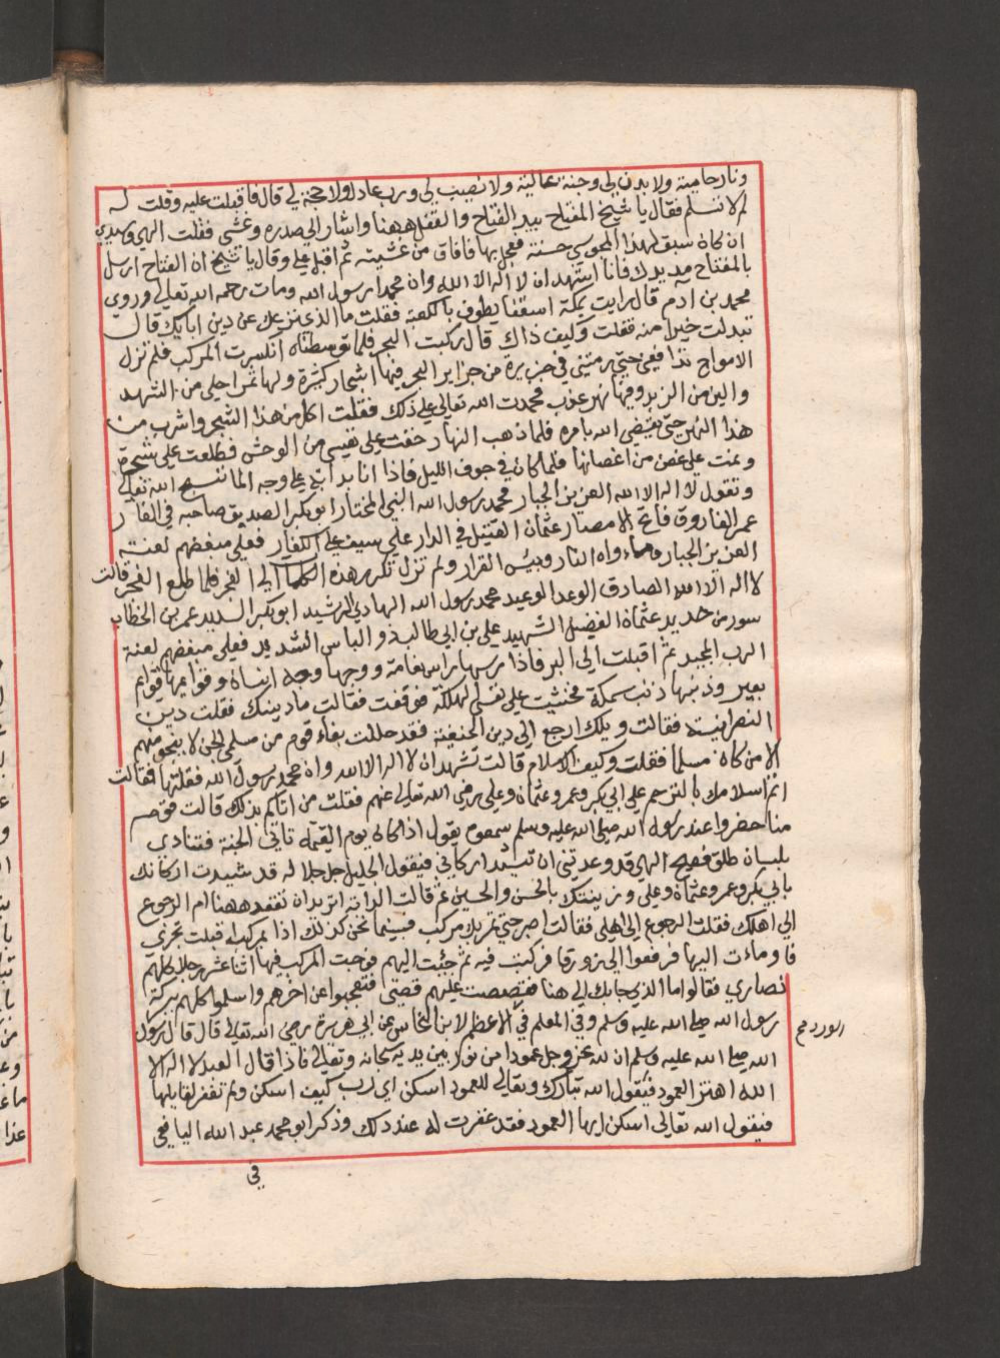 ونار حامية ولا بدن لي وجنة عالية ولا نصيب لي ورب عادل ولا حجة لي قال فاقبلت عليه وقلت له
لم لا تسلم فقال يا شيخ المفتاح بيد الفتاح والقفل ههنا واشار الي صدره وغشي فقلت الهي وسيدي
ان كان سبق لهذا المجوسي حسنة فعجل بها فافاق من غشيته ثم اقبل علي وقال يا شيخ ان الفتاح ارسل
بالمفتاح مد يدك فانا اشهد ان لا اله الا الله وان محمدا رسول الله ومات رحمه الله تعالي وروي
محمد بن ادم قال رايت بمكة اسقفا يطوف بالكعبة فقلت ما الذي نزعك عن دين ابايك قال
تبدلت خيرا منه فقلت وكيف ذاك قال ركبت البحر فلما توسطناه انكسرت المركب فلم تزل
الامواج تدافعني حتي رمتني في جزيرة من جزاير البحر فيها اشجار كثيرة ولها ثمر احلي من الشهد
والين من الزبد وفيها نهر عذب فحمدت الله تعالي علي ذلك فقلت اكل من هذا الشجر واشرب من
هذا النهر حتي يقضي الله بامره فلما ذهب النهار خفت علي نفسي من الوحش فطلعت علي شجرة
ونمت علي غصن من اغصانها فلما كان في جوف الليل فاذا انا بدابة علي وجه الما تسبح الله تعالي
وتقول لا اله الا الله العزيز الجبار محمد رسول الله النبي المختار ابو بكر الصديق صاحبه في الغار
عمر الفاروق فاتح الامصار عثمان القتيل في الدار علي سيف علي الكفار فعلي مبغضهم لعنة
العزيز الجبار وماواه النار وبيس القرار ولم تزل تكرر هذه الكلمات الي الفجر فلما طلع الفجر قالت
لا اله الا الله الصادق الوعد الوعيد محمد رسول الله الهادي الرشيد ابو بكر السديد عمر بن الخطاب
سور من حديد عثمان الفضيل الشهيد علي بن ابي طالب ذو الباس الشديد فعلي مبغضهم لعنة
الرب المجيد ثم اقبلت الي البر فاذا راسها راس نعامة ووجهها وجه انسان وقوايمها قوايم
بعير وذنبها ذنب سمكة فخشيت علي نفسي الهلكة فوقفت فقالت ما دينك فقلت دين
النصرانية فقالت ويلك ارجع الي دين الحنيفية فقد حللت بفناء قوم من مسلمي الجن لا ينجو منهم
الا من كان مسلما فقلت وكيف الاسلام قالت تشهد ان لا اله الا الله وان محمد رسول الله فقلتها فقالت
اتم اسلامك بالترحم علي ابي بكر وعمر وعثمان وعلي رضي الله تعالي عنهم فقلت من اتاكم بذلك قالت قوم
منا حضروا عند رسول الله صلي الله عليه وسلم سمعوه يقول اذا كان يوم القيمة تاتي الجنة فتنادي
بلسان طلق فصيح الهي قد وعدتني ان تشد اركاني فيقول الجليل جل جلاله قد شيدت اركانك
بابي بكر وعمر وعثمان وعلي وزينتك بالحسن والحسين ثم قالت الدابة اتريد ان تقعد ههنا ام الرجوع
الي اهلك فقلت الرجوع الي اهلي فقالت اصبر حتي تمر بك مركب فبينما نحن كذلك اذا بمركب اقبلت تجري
فاومات اليها فرفعوا الي زورقا فركبت فيه ثم جئت اليهم فوجدت المركب فيها اثنا عشر رجلا كلهم
نصاري فقالوا ما الذي جابك الي هنا فقصصت عليهم قصتي فتعجبوا عن اخرهم واسلموا كلهم ببركة
رسول الله صلي الله عليه وسلم وفي المعلم في الاعظم لابن النحاس عن ابي هريرة رضي الله تعالي قال قال رسول
الله صلي الله عليه وسلم ان لله عز وجل عمودا من نور بين يديه سبحانه وتعالي فاذا قال العبد لا اله الا
الله اهتز العمود فيقول الله تبارك وتعالي للعمود اسكن اي رب كيف اسكن ولم تغفر لقايلها
فيقول الله تعالي اسكن ايها العمود فقد غفرت له عند ذلك وذكر ابو محمد عبد الله اليافعي
في